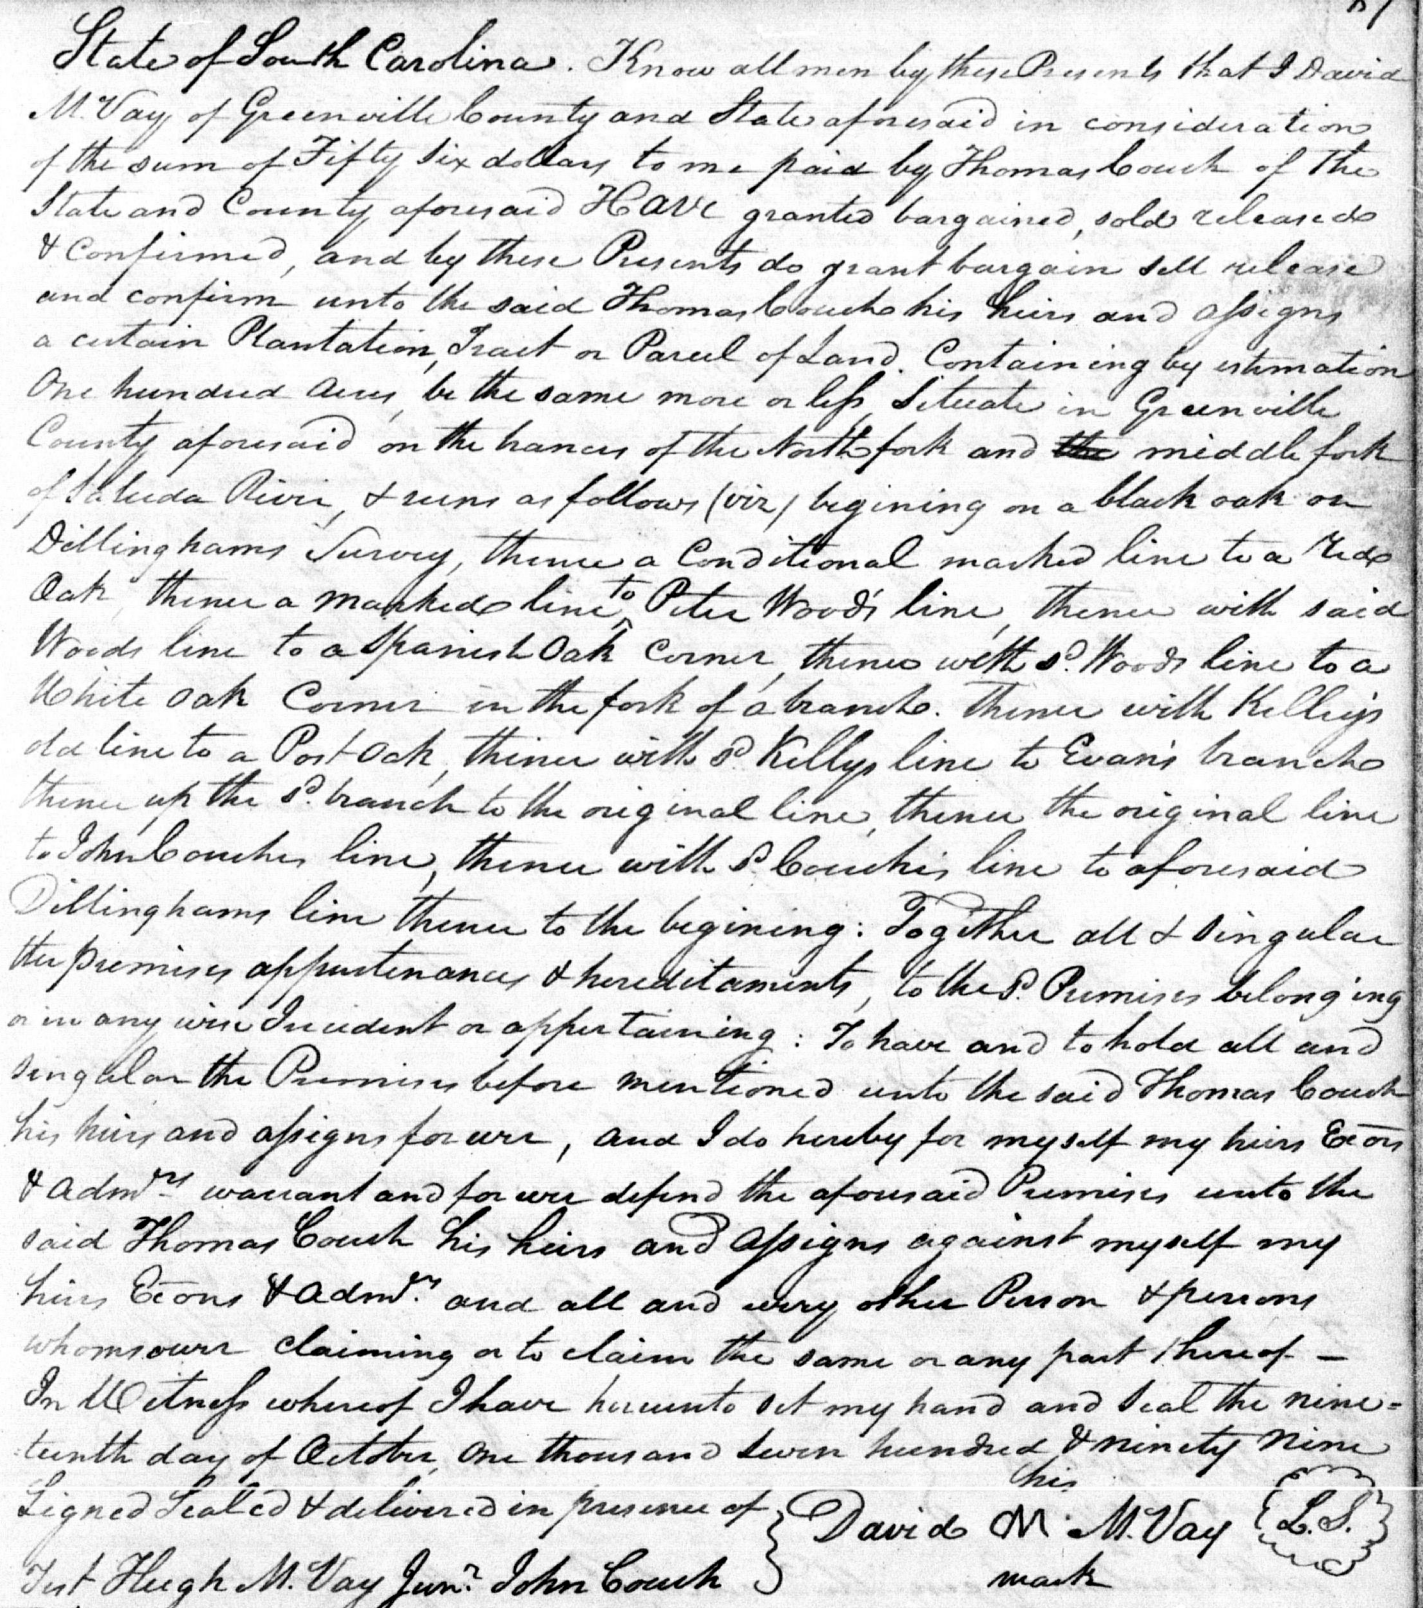 State of South Carolina. Know all men by these Presents that I David
M.Vay of Greenville County and State aforesaid in consideration
of the sum of Fifty Six dollars to me paid by Thomas Couch of The
State and County aforesaid Have granted bargained, sold released
& confirmed, and by these Presents do grant bargain sell release
and confirm unto the said Thomas Couch his heirs and assigns
a certain Plantation, Tract or Parcel of Land. Containing by estimation
One hundred acres, be the same more or less, Situate in Greenville
County aforesaid on the hances of the North fork and the middle fork
of Saluda River, & runs as follows (viz) begining on a black oak on
Dillinghams Survey, thence a Conditional marked line to a Red
Oak, thence a marked line to Peter Wood's line, thence with said
Woods line to a Spanish Oak Corner, thence with sd. Woods line to a
White Oak Corner in the fork of a branch. Thence with Kelley's
old line to a Post Oak, thence with sd. Kellys line to Evan's branch
thence up the sd. branch to the original line, thence the original line
to John Couches line, thence with sd. Couches line to aforesaid
Dillinghams line thence to the begining: Together all & singular
the premises appurtenances & hereditaments, to the sd. Premises belonging
or in any wise Incident or appertaining: To have and to hold all and
singular the Premises before mentioned unto the said Thomas Couch
his heirs and assigns forever, and I do hereby for myself my heirs Exors
& Admrs. warrant and forever defend the aforesaid Premises unto the
said Thomas Couch his heirs and assigns against myself my
heirs Exors & Admrs. and all and every other Person & persons
whomsoever claiming or to claim the same or any part thereof —
In Witness whereof I have hereunto set my hand and seal the nine=
=teenth day of October, One thousand seven hundred & ninety nine
Signed Sealed & delivered in presence of
Test Hugh M.Vay Junr. John Couch
his
David M M.Vay L.S.
mark